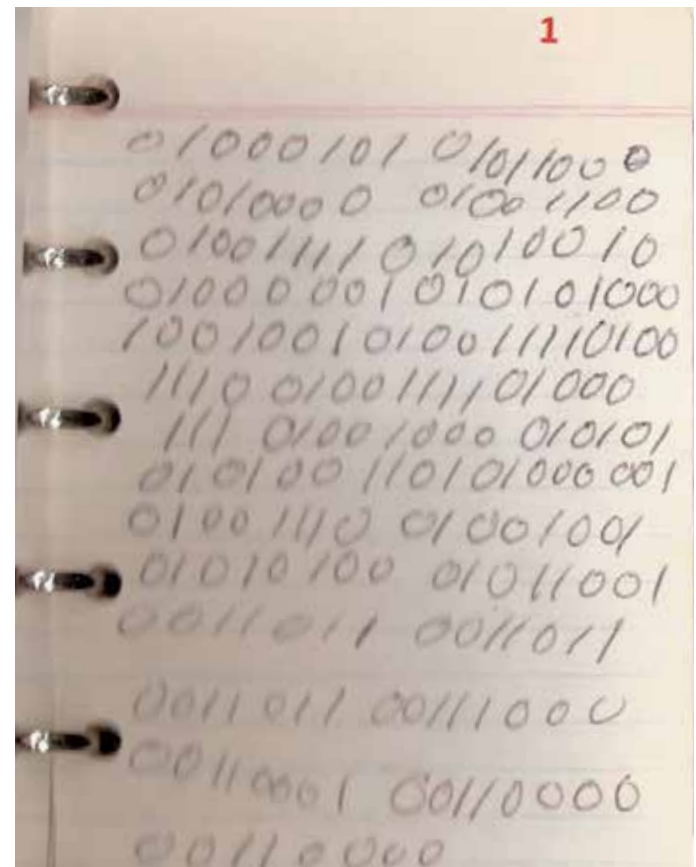 1
01000101 01011000
01010000 01001100
01001111 01010010
01000001 010101000
1001001010011110100
1110 01001111 01000
111 01001000 010101
010100 110101000001
01001110 01001001
01010100 01011001
0011011 0011011
0011011 00111000
00110001 00110000
00110000